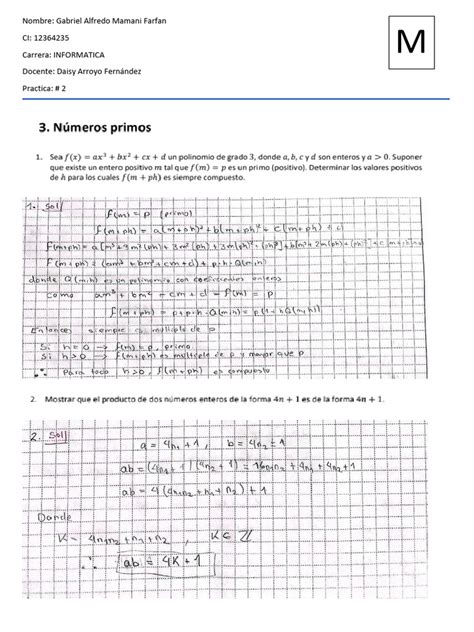 Nombre: Gabriel Alfredo Mamani Farfan
CI: 12364235
Carrera: INFORMATICA
Docente: Daisy Arroyo Fernández
Practica: # 2
M
3. Números primos
1. Sea f(x) = ax³ + bx² + cx + d un polinomio de grado 3, donde a, b, c y d son enteros y a > 0. Suponer
que existe un entero positivo m tal que f(m) = p es un primo (positivo). Determinar los valores positivos
de h para los cuales f(m + ph) es siempre compuesto.
1. Sol
f(m) = p (primo)
f(m+ph) = a(m+ph)³ + b(m+ph)² + c(m+ph)
donde Q(m,h) es un polinomio con coeficientes enteros
como am³ + bm² + cm + d = f(m) = p
f(m+ph) = p + p·h·Q(m,h) = p(1+hQ(m,h))
Entonces siempre múltiplo de p
Si h=0 → f(m)=p, primo
Si h>0 → f(m+ph) es multiplo de p y mayor que p
∴ Para todo h>0, f(m+ph) es compuesto
2. Mostrar que el producto de dos números enteros de la forma 4n + 1 es de la forma 4n + 1.
2. Sol
a = 4n₁ + 1 , b = 4n₂ + 1
ab = (4n₁+1)(4n₂+1) = 16n₁n₂ + 4n₁ + 4n₂ + 1
ab = 4(4n₁n₂ + n₁ + n₂) + 1
Donde
K = 4n₁n₂ + n₁ + n₂ , K ∈ ℤ
∴ ab = 4K + 1